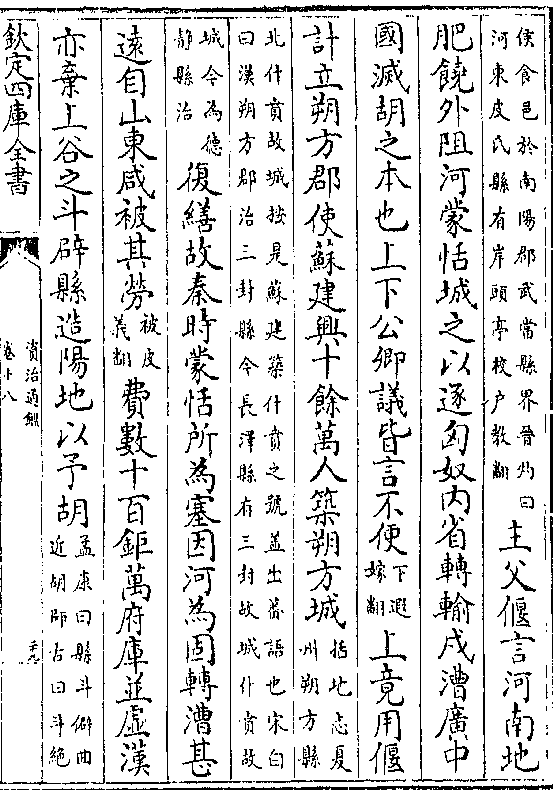 侯食邑於南陽郡武當縣界晉灼曰
河東皮氏縣有岸頭亭校户教翻
主父偃言河南地
肥饒外阻河蒙恬城之以逐匈奴内省轉輸戍漕廣中
國滅胡之本也上下公卿議皆言不便
下遐
嫁翻
上竟用偃
計立朔方郡使蘇建興十餘萬人築朔方城
括地志夏
州朔方縣
北什賁故城按是蘇建築什賁之號蓋出蕃語也宋白
曰漢朔方郡治三封縣今長澤縣有三封故城什賁故
城今為德
靜縣治
復繕故秦時蒙恬所為塞因河為固轉漕甚
遠自山東咸被其勞
被皮
義翻
費數十百鉅萬府庫並虚漢
亦棄上谷之斗辟縣造陽地以予胡
孟康曰縣斗僻曲
近胡師古曰斗絶
欽定四庫全書
資治通鑑
卷十八